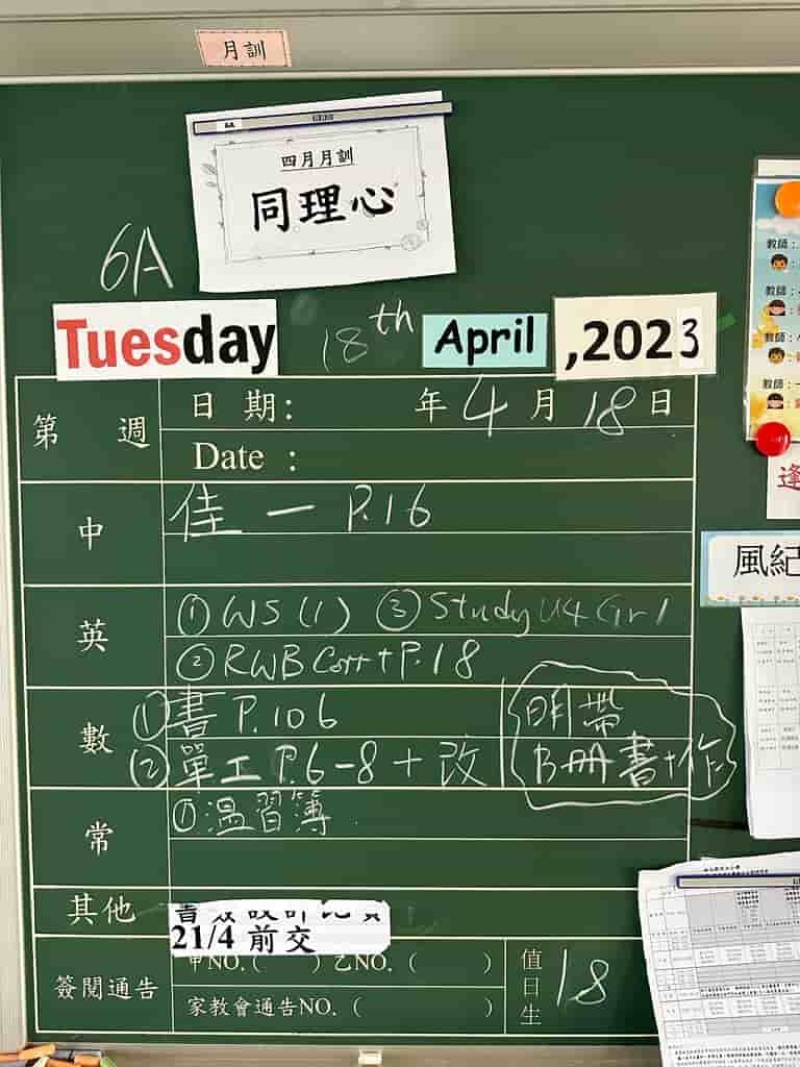 月訓
四月月訓
同理心
6A
Tuesday 18th April ,2023
第 週
日 期: 年 4 月 18 日
Date :
中
佳 一 P.16
英
① WS (1) ③ Study U4 Gr 1
② RWB Corr + P.18
數
① 書 P.106
② 單工 P.6-8 + 改
明帶
B冊書+作
常
① 溫習簿
其他
21/4 前交
簽閱通告
甲NO.( ) 乙NO. ( )
家教會通告NO. ( )
值日生 18
教師:
教師:
教師:
教師:
逢
風紀